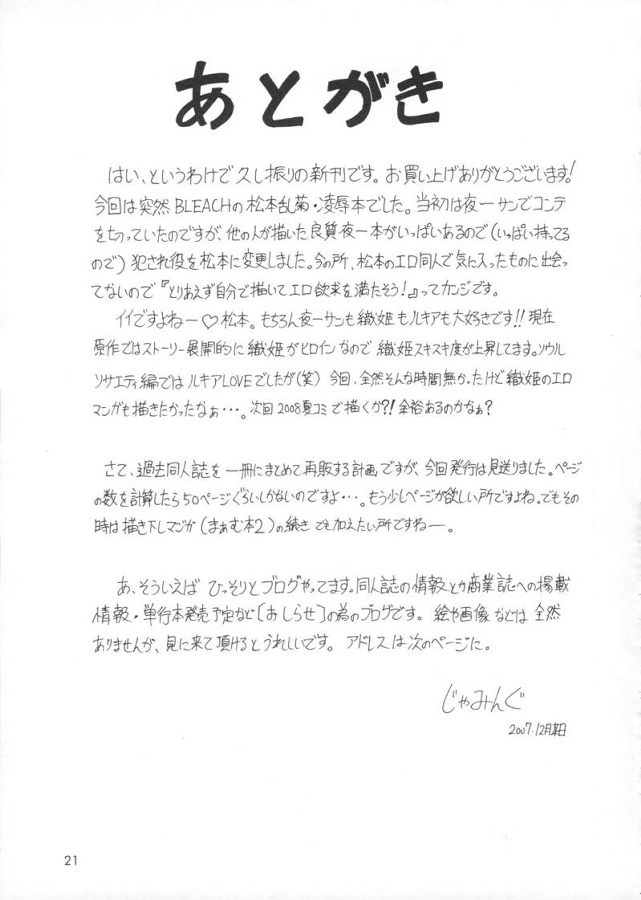 あとがき
はい、というわけで久し振りの新刊です。お買い上げありがとうございます!
今回は突然BLEACHの松本乱菊・凌辱本でした。当初は夜一サンでコンテ
を切っていたのですが、他の人が描いた良質夜一本がいっぱいあるので(いっぱい持ってる
ので)犯され役を松本に変更しました。今の所、松本のエロ同人で気に入ったものに出会っ
てないので『とりあえず自分で描いてエロ欲求を満たそう!』ってカンジです。
イイですよねー♡松本。もちろん夜一サンも織姫もルキアも大好きです!!現在
原作ではストーリー展開的に織姫がヒロインなので織姫スキスキ度が上昇してます。ソウル
ソサエティ編ではルキアLOVEでしたが(笑)今回、全然そんな時間無かったけど織姫のエロ
マンガも描きたかったなぁ…。次回2008夏コミで描くか?!余裕あるのかなぁ?
さて、過去同人誌を一冊にまとめて再販する計画ですが、今回発行は見送りました。ページ
の数を計算したら50ページぐらいしかないのですよ…。もう少しページが欲しい所ですよね。でもその
時は描き下しマンガか(まぁむ本2)の続きでも加えたい所ですねー。
あ、そういえばひっそりとブログやってます。同人誌の情報とか商業誌への掲載
情報・単行本発売予定など[おしらせ]の為のブログです。絵や画像などは全然
ありませんが、見に来て頂けるとうれしいです。アドレスは次のページに。
じゃみんぐ
2007.12月某日
21